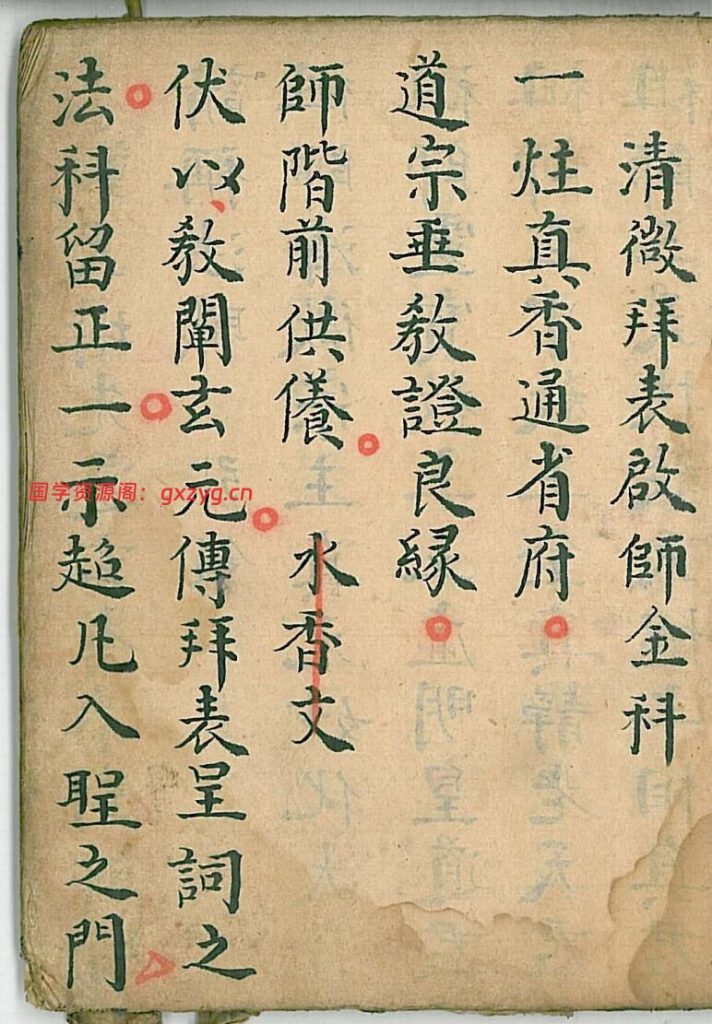 清微拜表啟師金科
一炷真香通省府
道宗垂教證良緣
師階前供養 水香文
伏以教闡玄元傳拜表呈詞之
法科留正一示超凡入聖之門
国学资源阁：gxzyg.cn